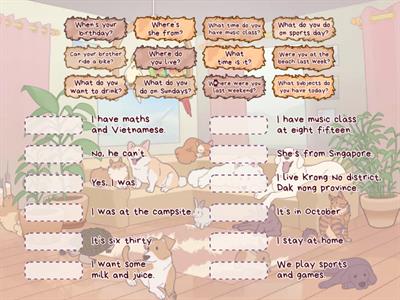 When's your
birthday?
Where's
she from?
What time do you
have music class?
What do you do
on sports day?
Can your brother
ride a bike?
Where do
you live?
What
time is it?
Were you at the
beach last week?
What do you
want to drink?
What do you
do on Sundays?
Where were you
last weekend?
What subjects do
you have today?
I have maths
and Vietnamese.
I have music class
at eight fifteen
No, he can't
She's from Singapore
Yes, I was
I live Krong No district,
Dak nong province
I was at the campsite
It's in October
It's six thirty
I stay at home
I want some
milk and juice.
We play sports
and games.